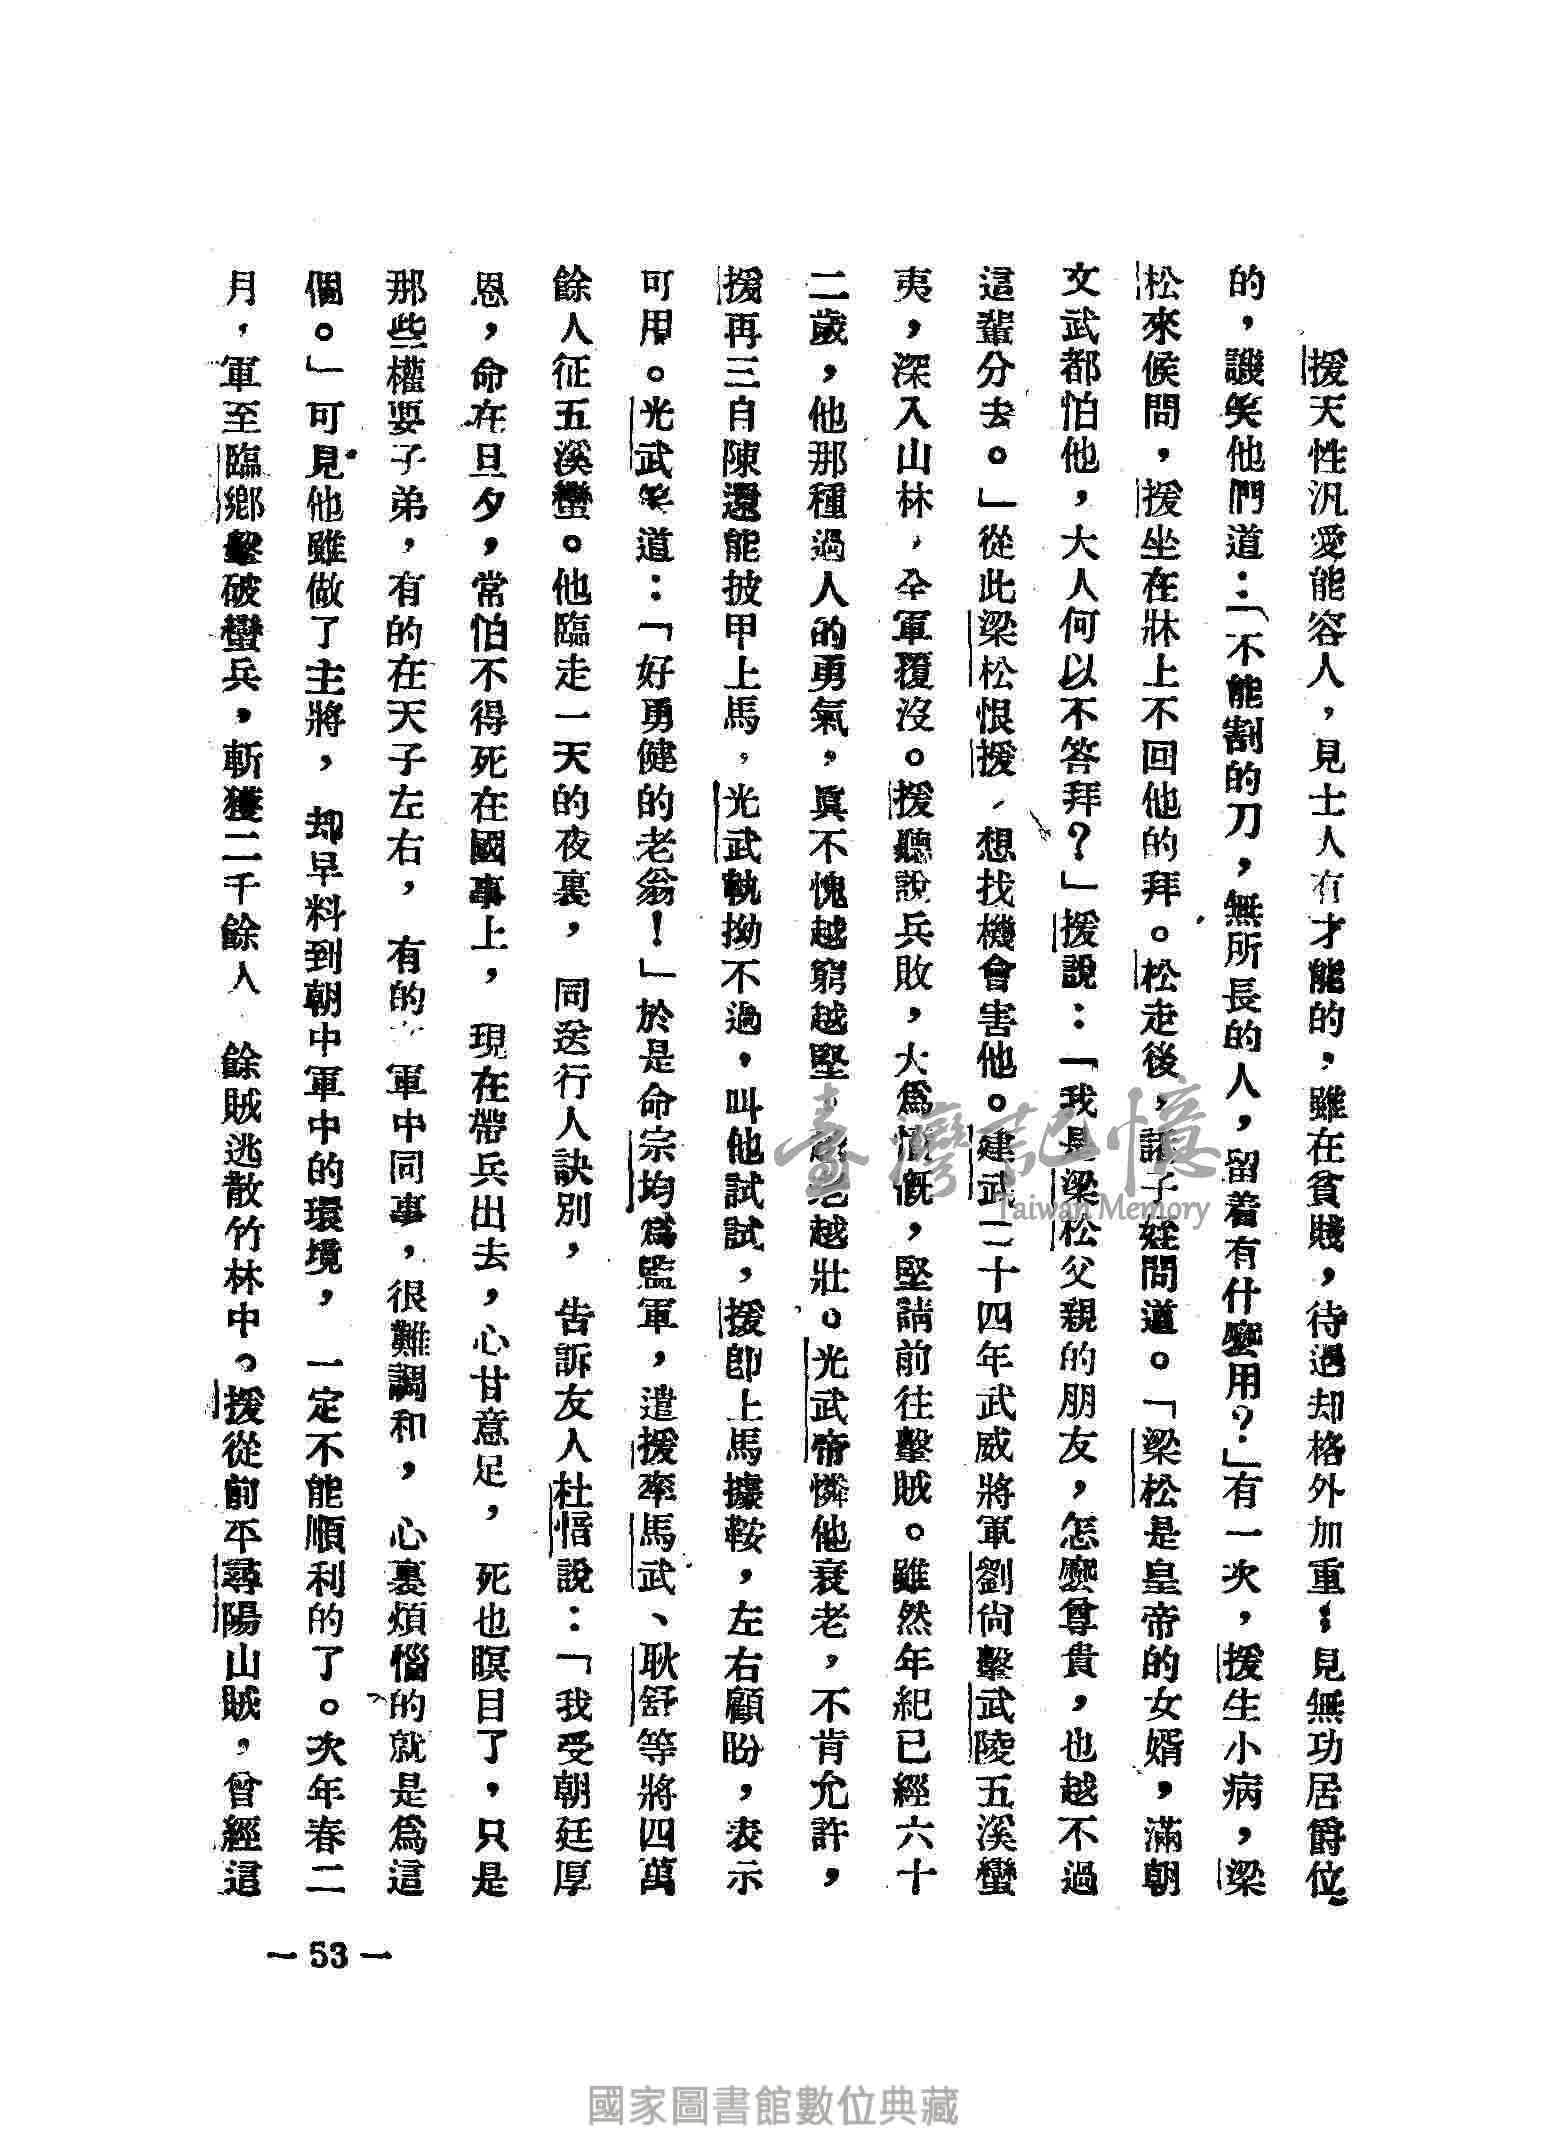 援天性汎愛能容人，見士人有才能的，雖在貧賤，待遇却格外加重；見無功居爵位
的，譏笑他們道：「不能割的刀，無所長的人，留着有什麼用？」有一次，援生小病，梁
松來候問，援坐在牀上不回他的拜。松走後，諸子姪問道。「梁松是皇帝的女婿，滿朝
文武都怕他，大人何以不答拜？」援說：「我是梁松父親的朋友，怎麼尊貴，也越不過
這輩分去。」從此梁松恨援，想找機會害他。建武二十四年武威將軍劉尙擊武陵五溪蠻
夷，深入山林，全軍覆沒。援聽說兵敗，大爲憤慨，堅請前往擊賊。雖然年紀已經六十
二歲，他那種過人的勇氣，眞不愧越窮越堅，越老越壯。光武帝憐他衰老，不肯允許，
援再三自陳還能披甲上馬，光武執拗不過，叫他試試，援卽上馬據鞍，左右顧盼，表示
可用。光武笑道：「好勇健的老翁！」於是命宗均爲監軍，遣援率馬武、耿舒等將四萬
餘人征五溪蠻。他臨走一天的夜裏，同送行人訣別，告訴友人杜愔說：「我受朝廷厚
恩，命在旦夕，常怕不得死在國事上，現在帶兵出去，心甘意足，死也瞑目了，只是
那些權要子弟，有的在天子左右，有的軍中同事，很難調和，心裏煩惱的就是爲這
個。」可見他雖做了主將，却早料到朝中軍中的環境，一定不能順利的了。次年春二
月，軍至臨鄉擊破蠻兵，斬獲二千餘人 餘賊逃散竹林中。援從前平尋陽山賊，曾經這
— 53 —
臺灣記憶
Taiwan Memory
國家圖書館數位典藏